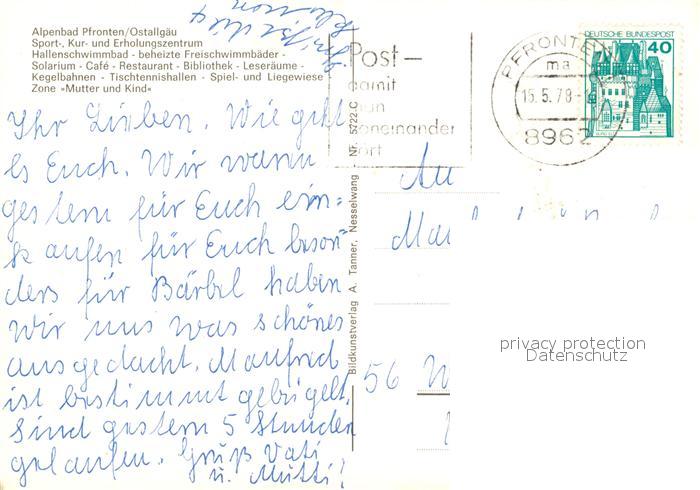 Alpenbad Pfronten/Ostallgäu
Sport-, Kur- und Erholungszentrum
Hallenschwimmbad - beheizte Freischwimmbäder -
Solarium - Café - Restaurant - Bibliothek - Leseräume -
Kegelbahnen - Tischtennishallen - Spiel- und Liegewiese
Zone »Mutter und Kind«
Ihr Lieben. Wie geht
es Euch. Wir waren
gestern für Euch ein=
kaufen für Euch beson=
ders für Bärbel haben
wir uns was schönes
ausgedacht. Manfred
ist bestimmt gebügelt,
sind gestern 5 Stunden
gelaufen. Gruß Vati
u. Mutti!
Bildkunstverlag A. Tanner, Nesselwang - Nr. 5722 C
Post-
damit
man
voneinander
hört
PFRONTEN
ma
15.5.78
8962
DEUTSCHE BUNDESPOST
40
An
56 W
privacy protection
Datenschutz